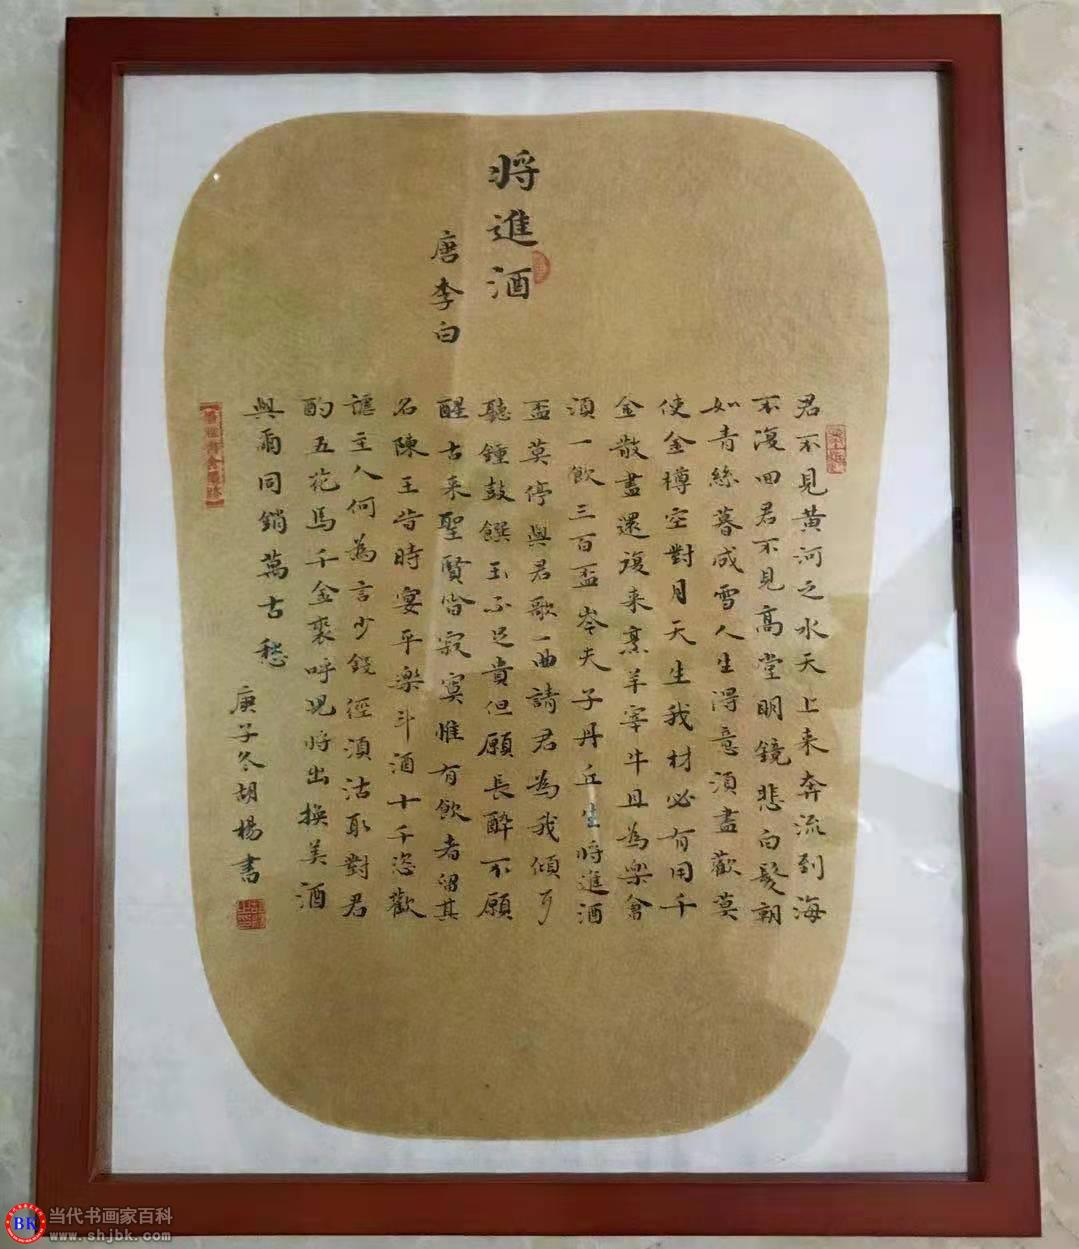 將進酒
唐李白
君不見黄河之水天上来奔流到海
不復回君不見高堂明鏡悲白髮朝
如青絲暮成雪人生得意須盡歡莫
使金樽空對月天生我材必有用千
金散盡還復来烹羊宰牛且為樂會
須一飲三百盃岑夫子丹丘生將進酒
盃莫停與君歌一曲請君為我傾耳
聽鐘鼓饌玉不足貴但願長醉不願
醒古来聖賢皆寂寞惟有飲者留其
名陳王昔時宴平樂斗酒十千恣歡
謔主人何為言少錢徑須沽取對君
酌五花馬千金裘呼児將出換美酒
與爾同銷萬古愁
庚子冬胡楊書
BK
当代书画家百科
www.shjbk.com